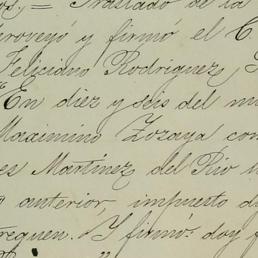 Traslado de la
proveyó y firmó el C
Feliciano Rodriguez,
En diez y seis del m
Maximino Zozaya con
es Martinez del Rio
anterior, impuesto d
reguen. Y firmó. doy f